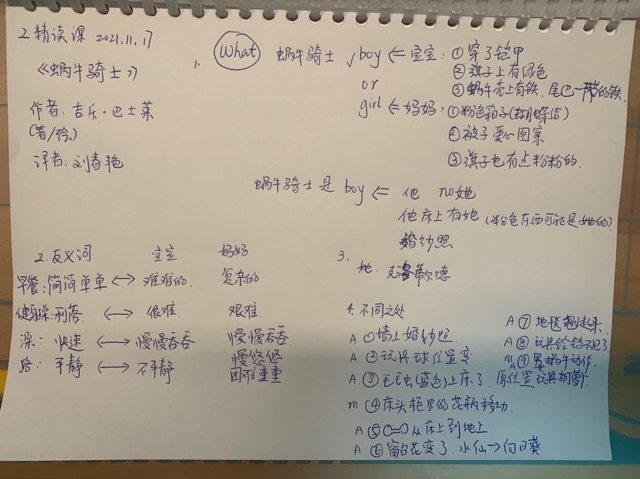 2.精读课 2021.11.17
《蜗牛骑士》
作者:吉乐·巴士莱
(著/绘)
译者:刘春艳
1. What 蜗牛骑士 boy ⇐ 宝宝: ①穿了铠甲
②旗子上有绿色
③蜗牛壳上有铁,尾巴一带的铁
or
girl ⇐ 妈妈: ①粉色箱子(蝴蝶结)
②被子爱心图案
③旗子也有点粉粉的.
蜗牛骑士是 boy ⇐ 他 no她
他床上有她(粉色东西可能是她的)
婚纱照
2.反义词 宝宝 妈妈
早餐:简简单单 ↔ 难难的. 复杂的
利落. ↔ 很难 艰难
澡: 快速 ↔ 慢慢吞吞 慢慢吞吞
慢悠悠
路: 平静 ↔ 不平静 困难重重
3.
她: 蒂尔德
4.不同之处
A ①墙上婚纱照.
A ②玩具球位置变
A ③毛毛虫(蓝色)上床了.原位置玩具胡萝卜
m ④床头柜里的花瓶移动.
A ⑤ 从床上到地上
A ⑥窗台花变了.水仙→向日葵
A ⑦地毯翘起来.
A ⑧玩具恰恰不见了
⑨ 蜗牛动作